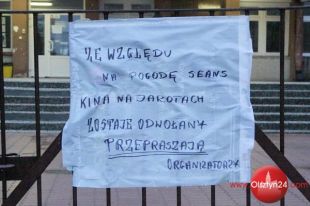 ZE WZGLĘDU
NA POGODĘ SEANS
KINA NA JAROTACH
ZOSTAJE ODWOŁANY
PRZEPRASZAJĄ
ORGANIZATORZY
www.Olsztyn24.com